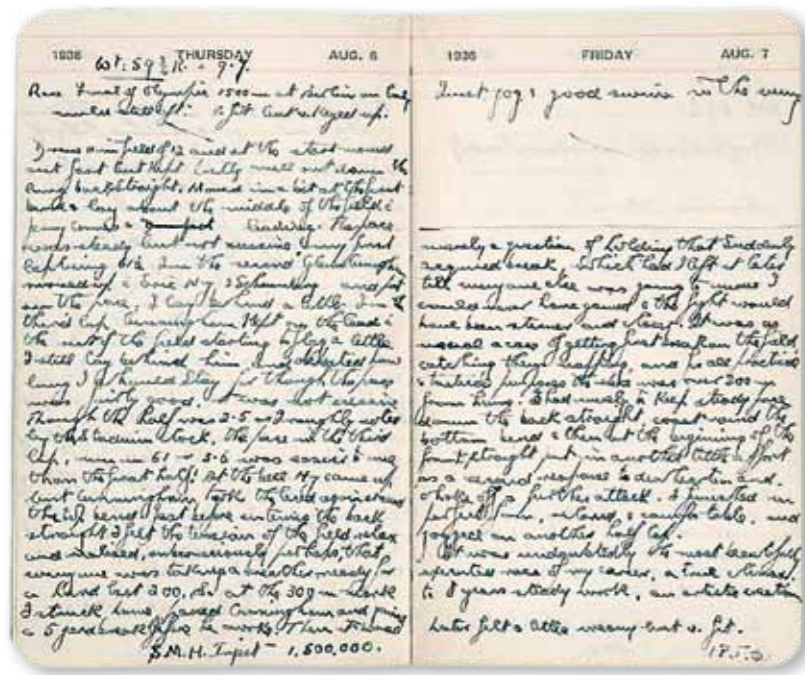 1936 THURSDAY AUG. 6
Wt: 59½ K. = 9.7.
Ran Final of Olympic 1500m at Berlin on
fit but keyed up.
I was in field of 12 and at the start moved
out fast but kept well out down the
long back straight. Moved in a bit at the first
bend & lay about the middle of the field
leading. The pace
was steady but not
lap being 61.2. In the second Cunningham
moved up & Ny, & Schaumburg and put
on the pace, I lay behind a little. In the
third lap Cunningham kept in the lead &
the rest of the field starting to flag a little
I still lay behind him, and how
long I should stay for though the pace
was fairly good, it was not excessive
Though the half was 2.5 as I roughly noted
by the Stadium clock, the pace in the third
lap, run in 61 – 3.6 was easier to me
than the first half! At the bell Ny came up
but Cunningham took the lead again round
the bend. Just before entering the back
straight I felt the tension of the field relax
and realised, subconsciously perhaps, that
everyone was taking a breather ready for
a hard last 200. So at the 300 m mark
I struck home, passed Cunningham and
a 5 yard break before he woke. Then it was
S.M.H. 1,500,000.
1936 FRIDAY AUG. 7
Just jog & good swim in the
merely a question of holding that suddenly
acquired break, which had I left it later
till everyone else was going to move I
could never have gained & the fight would
have been sterner and closer. It was as
usual a case of getting first break on the field
catching them napping, and to all practical
& tactical purposes the race was over 300 m
from home. I had merely to keep steady pace
down the back straight coast round the
bottom bend & then at the beginning of the
front straight put in another little effort
as a second response to and
choke off a further attack. I finished in
perfect form, relaxed & comfortable, and
jogged on another half lap.
It was undoubtedly the most beautifully
executed race of my career, a true climax
to 8 years steady work, an artistic creation
Later felt a little weary but v. fit.